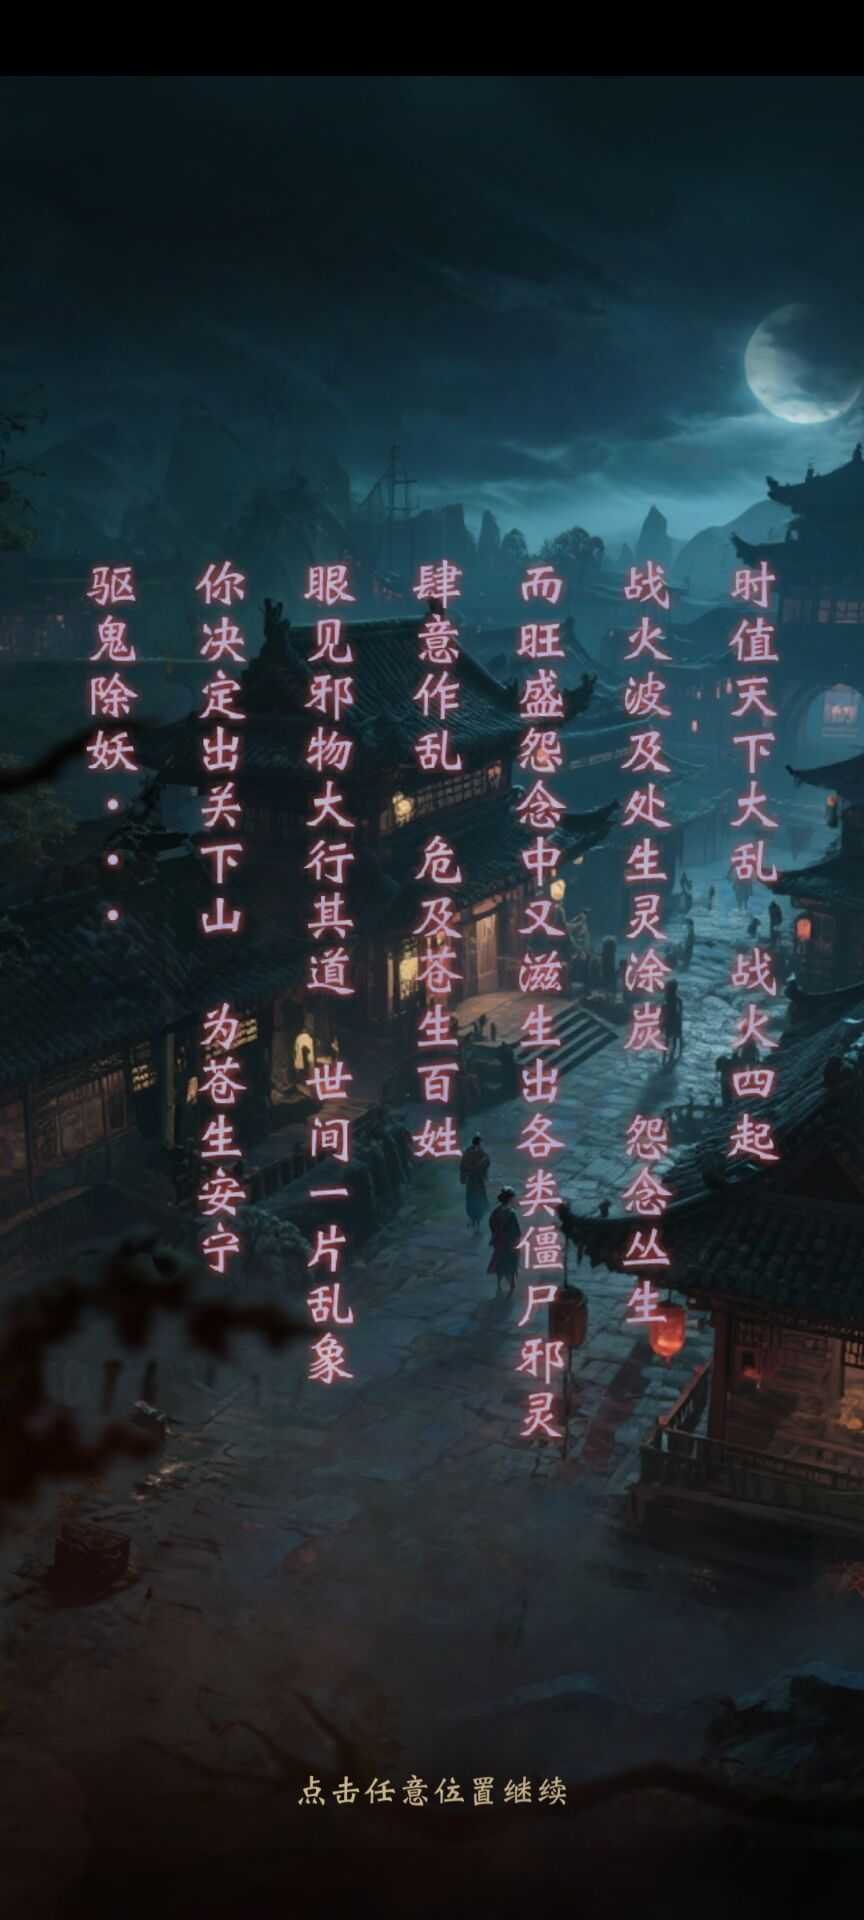 时值天下大乱 战火四起
战火波及处生灵涂炭 怨念丛生
而旺盛怨念中又滋生出各类僵尸邪灵
肆意作乱 危及苍生百姓
眼见邪物大行其道 世间一片乱象
你决定出关下山 为苍生安宁
驱鬼除妖···
点击任意位置继续